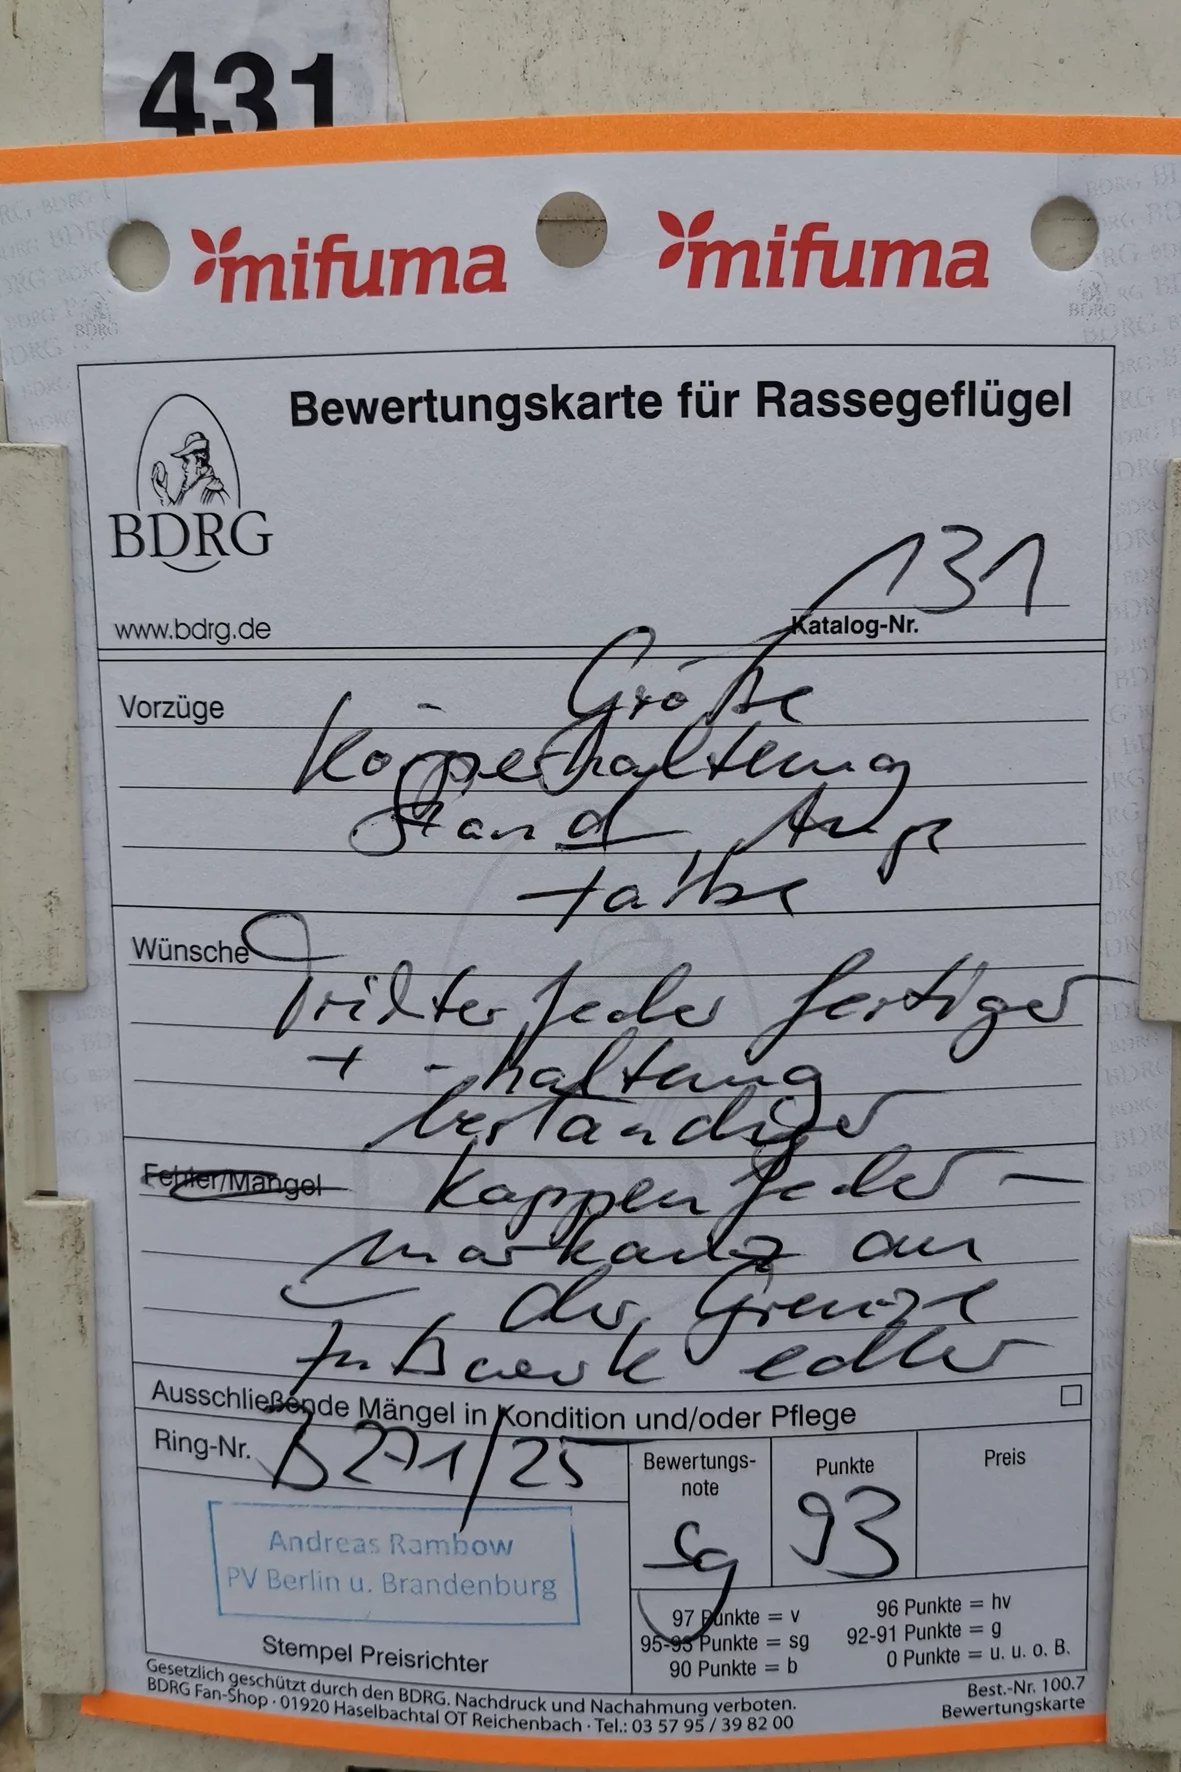 431
mifuma mifuma
Bewertungskarte für Rassegeflügel
BDRG
www.bdrg.de
131
Katalog-Nr.
Vorzüge
Größe
Körperhaltung
Stand, Auge
farbe
Wünsche
feder fertiger
+ -haltung
beständiger
Fehler/Mängel
Kappenfeder -
markanz an
der Grenze
Fußwerk edler
Ausschließende Mängel in Kondition und/oder Pflege
Ring-Nr. B271/25
Bewertungs-
note
sg
Punkte
93
Preis
Andreas Rambow
PV Berlin u. Brandenburg
Stempel Preisrichter
97 Punkte = v 96 Punkte = hv
95-93 Punkte = sg 92-91 Punkte = g
90 Punkte = b 0 Punkte = u. u. o. B.
Gesetzlich geschützt durch den BDRG. Nachdruck und Nachahmung verboten.
BDRG Fan-Shop · 01920 Haselbachtal OT Reichenbach · Tel.: 03 57 95 / 39 82 00
Best.-Nr. 100.7
Bewertungskarte